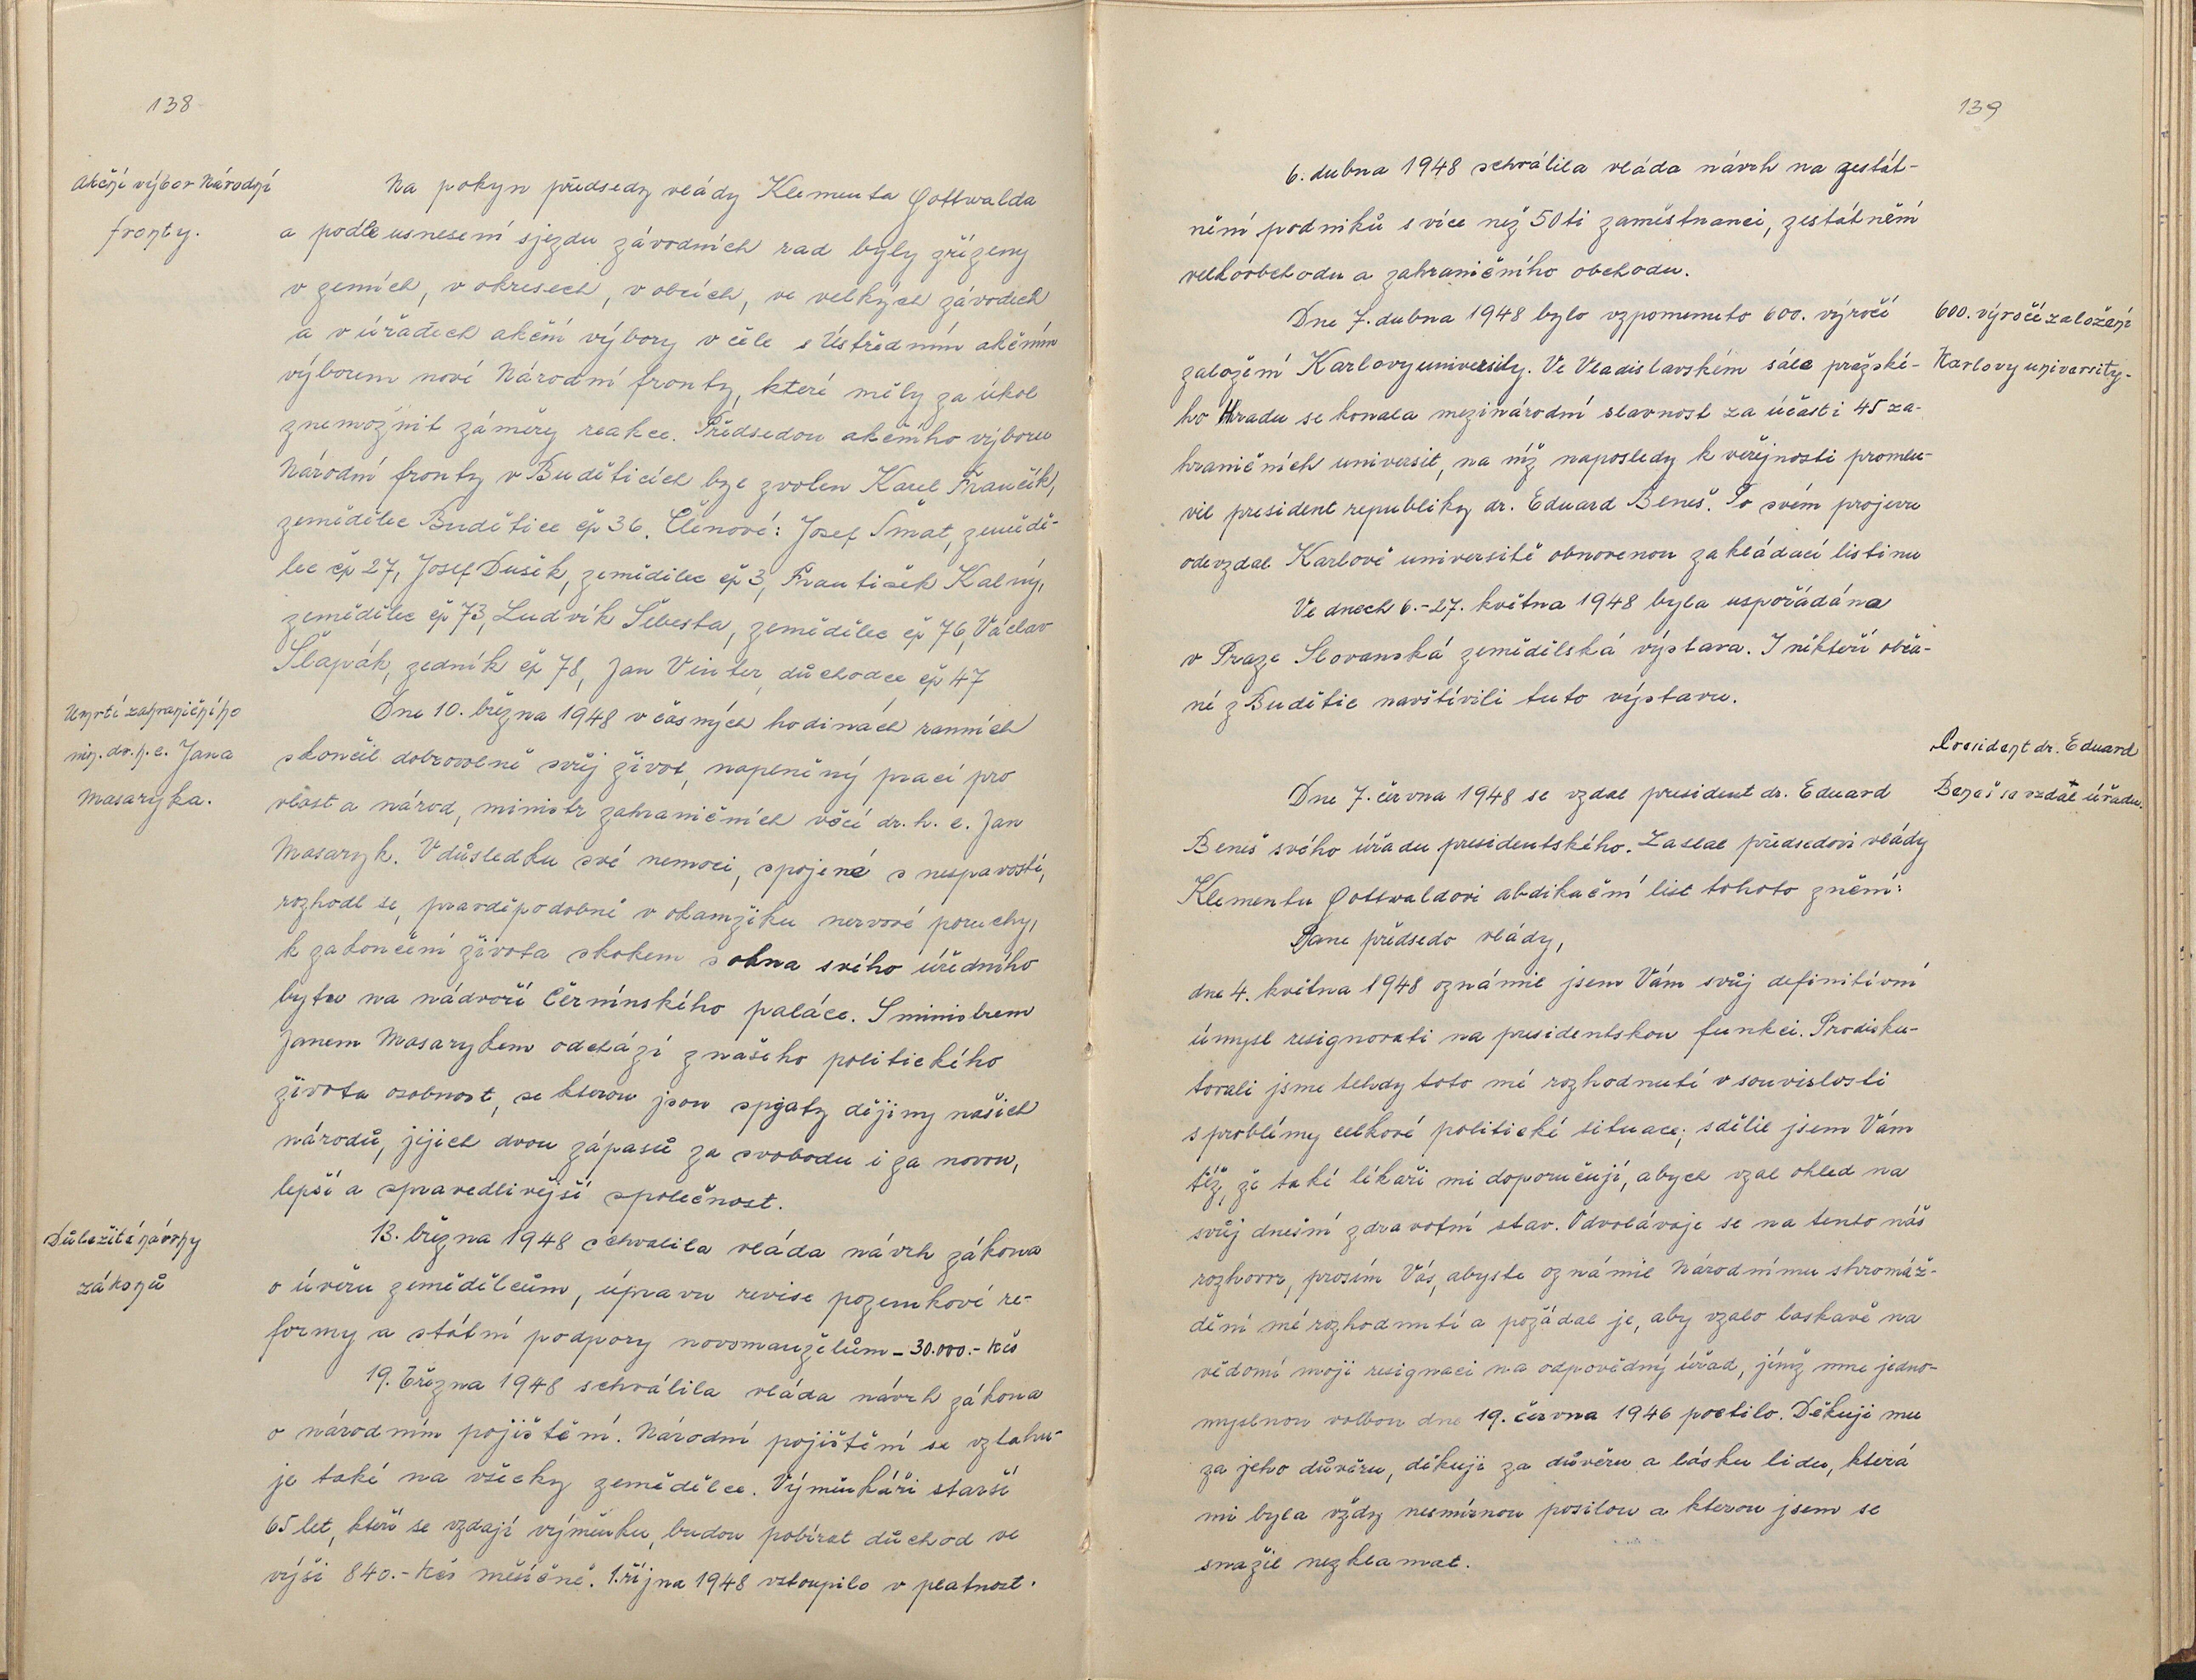 138
Akční výbor Národní
fronty.
Na pokyn předsedy vlády Klementa Gottwalda
a podle usnesení sjezdu závodních rad byly zřízeny
v zemích, v okresech, v obcích, ve velkých závodech
a v úřadech akční výbory v čele s Ústředním akčním
výborem nové Národní fronty, které měly za úkol
znemožnit záměry reakce. Předsedou akčního výboru
Národní fronty v Budětících byl zvolen Karel Frančík,
zemědělec Budětice čp 36. Členové: Josef Šmat, zemědě-
lec čp 27, Josef Dušek, zemědělec čp 3, František Kalný,
zemědělec čp 73, Ludvík Šebesta, zemědělec čp 76, Václav
Šlapák, zedník čp 78, Jan Vinter, důchodce čp 47
Úmrtí zahraničního
min. dr. h. c. Jana
Masaryka.
Dne 10. března 1948 v časných hodinách ranních
skončil dobrovolně svůj život, naplněný prací pro
vlast a národ, ministr zahraničních věcí dr. h. c. Jan
Masaryk. V důsledku své nemoci, spojené s nespavostí,
rozhodl se, pravděpodobně v okamžiku nervové poruchy,
k zakončení života skokem s okna svého úředního
bytu na nádvoří Černínského paláce. S ministrem
Janem Masarykem odchází z našeho politického
života osobnost, se kterou jsou spjaty dějiny našich
národů, jejich dvou zápasů za svobodu i za novou,
lepší a spravedlivější společnost.
Důležité návrhy
zákonů
13. března 1948 schválila vláda návrh zákona
o úvěru zemědělcům, úpravu revise pozemkové re-
formy a státní podpory novomanželům - 30.000.- Kčs
19. března 1948 schválila vláda návrh zákona
o národním pojištění. Národní pojištění se vztahu-
je také na všecky zemědělce. Výměnkáři starší
65 let, kteří se vzdají výměnku, budou pobírat důchod ve
výši 840.- Kčs měsíčně. 1. října 1948 vstoupilo v platnost.
139
6. dubna 1948 schválila vláda návrh na zestát-
nění podniků s více než 50ti zaměstnanci, zestátnění
velkoobchodu a zahraničního obchodu.
Dne 7. dubna 1948 bylo vzpomenuto 600. výročí
založení Karlovy university. Ve Vladislavském sále pražské-
ho Hradu se konala mezinárodní slavnost za účasti 45 za-
hraničních universit, na níž naposledy k veřejnosti promlu-
vil president republiky dr. Eduard Beneš. Po svém projevu
odevzdal Karlově universitě obnovenou zakládací listinu
600. výročí založení
Karlovy university.
Ve dnech 6.-27. května 1948 byla uspořádána
v Praze Slovanská zemědělská výstava. I někteří obča-
né z Budětic navštívili tuto výstavu.
President dr. Eduard
Beneš se vzdal úřadu.
Dne 7. června 1948 se vzdal president dr. Eduard
Beneš svého úřadu presidentského. Zaslal předsedovi vlády
Klementu Gottwaldovi abdikační list tohoto znění:
Pane předsedo vlády,
dne 4. května 1948 oznámil jsem Vám svůj definitivní
úmysl resignovati na presidentskou funkci. Prodisku-
tovali jsme tehdy toto mé rozhodnutí v souvislosti
s problémy celkové politické situace; sdělil jsem Vám
též, že také lékaři mi doporučují, abych vzal ohled na
svůj dnešní zdravotní stav. Odvolávaje se na tento náš
rozhovor, prosím Vás, abyste oznámil Národnímu shromáž-
dění mé rozhodnutí a požádal je, aby vzalo laskavě na
vědomí moji resignaci na odpovědný úřad, jímž mne jedno-
myslnou volbou dne 19. června 1946 poctilo. Děkuji mu
za jeho důvěru, děkuji za důvěru a lásku lidu, která
mi byla vždy nesmírnou posilou a kterou jsem se
snažil nezklamat.